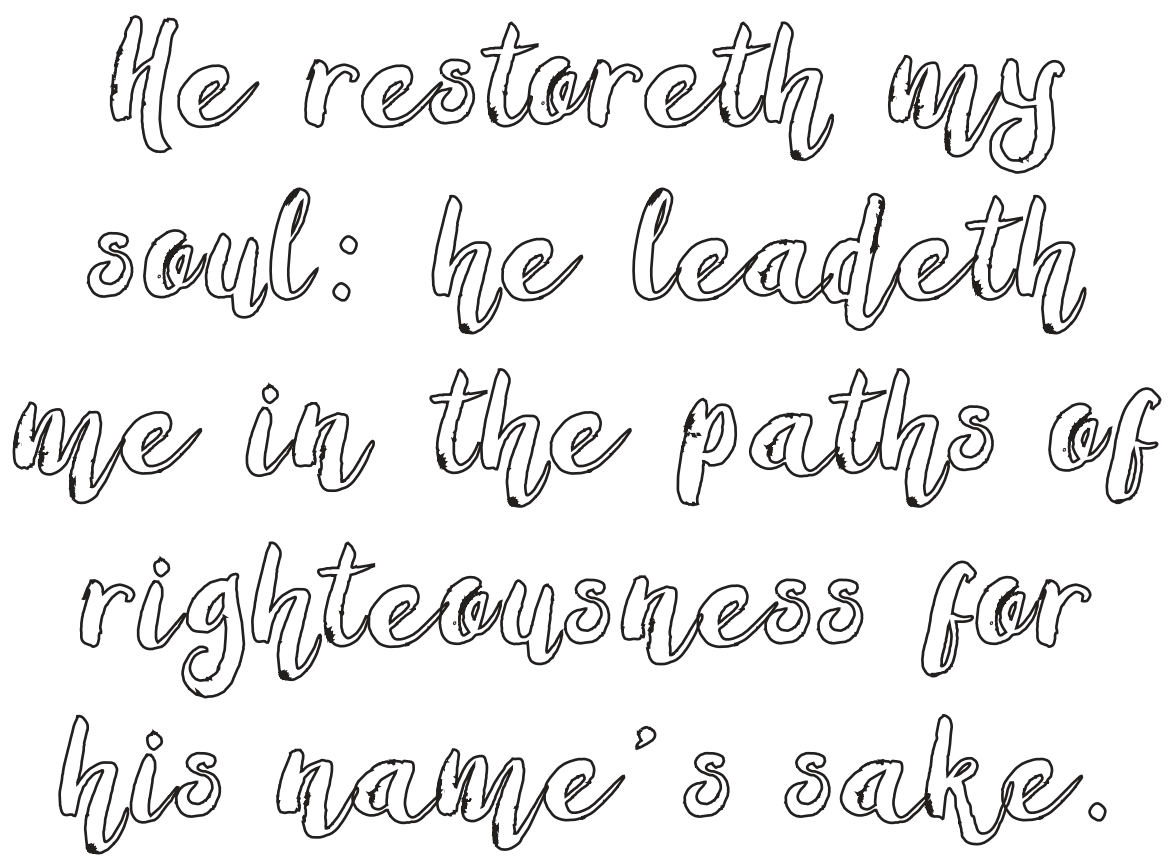 He restoreth my
soul: he leadeth
me in the paths of
righteousness for
his name's sake.